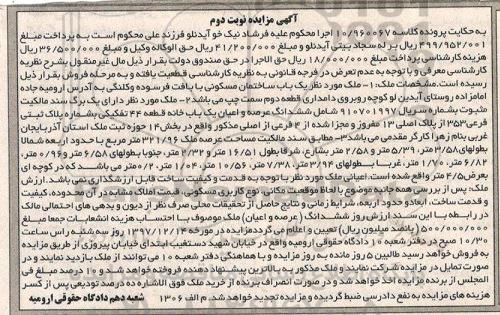 آگهی مزایده نوبت دوم
به حکایت پرونده کلاسه ۱۰/۹۶۰۰۶۷ اجرا محکوم علیه فرشاد نیک خو آیدنلو فرزند علی محکوم است به پرداخت مبلغ
۴۹۹/۹۵۲/۰۰۱ ریال بر له سجاد بیتی آیدنلو و مبلغ ۴۱/۲۰۰/۰۰۰ ریال حق الوکاله وکیل و مبلغ ۳۶/۵۰۰/۰۰۰ ریال
هزینه کارشناسی پرداخت و مبلغ ۱۸/۰۰۰/۰۰۰ ریال حق الاجرا در حق صندوق دولت بقرار ذیل مال غیر منقول بشرح نظریه
کارشناسی معرفی و با توجه به عدم تعرض در فرجه قانونی به نظریه کارشناسی قطعیت یافته و به مرحله فروش بقرار ذیل
رسیده است. مشخصات ملک: ۱- ملک مورد نظر یک باب ساختمان مسکونی با بافت فرسوده وکلنگی به آدرس ارومیه جاده
امامزاده روستای آیدین لو کوچه روبروی دامداری قطعه دوم سمت چپ می باشد ۲- ملک مورد نظر دارای یک برگ سند مالکیت
مثبوت بشماره سریال ۹۱۰۷۰۱۹۹۷ شامل ششدانگ عرصه و اعیان یک باب خانه قطعه ۴۴ تفکیکی بشماره پلاک ثبتی
فرعی ۳۵۳ از پلاک اصلی ۱۳ مفروز و مجزا شده از ۲ فرعی از اصلی مذکور واقع در بخش ۱۴ حوزه ثبت ملک استان آذربایجان
غربی بنام زهرا کارگر مقدمی می باشد ۳- مطابق سند مالکیت مساحت عرصه ملک ۳۲۱/۹۶ متر مربع با حدود اربعه شمالا
بطولهای ۳/۵۸ متر، ۵/۳۹ متر و ۲/۵۸ متر بشارع، شرقا بطول ۱۶/۵۱ متر و ۲/۳۲ متر، جنوبا بطولهای ۶/۵۸ متر و ۰/۹۶ متر،
۶/۸۲ متر، ۱/۷۰ متر، غربا بطولهای ۳/۹۴ متر، ۷/۳۸ متر، ۱۰/۵۶ متر، ۱/۰۴ متر، ۰/۲ متر می باشند که در کوچه ای
بعرض ۴/۵ متر واقع شده است. اعیانی ملک مورد نظر با توجه به قدمت و کیفیت ساخت قابل ارزش گذاری نمی باشد. ارزش
ملک: پس از بررسی همه جانبه موضوع با لحاظ موقعیت مکانی، نوع کاربری مسکونی، قیمت املاک مشابه در آن محدوده، کیفیت
و قدمت ساخت، ابعاد و حدود اربعه، شرایط زمانی و نتایج حاصل از تحقیقات محلی صرف نظر از دیون و بدهی های احتمالی مالک
در رابطه با این سند ارزش روز ششدانگ (عرصه و اعیان) ملک موصوف با احتساب هزینه انشعابات جمعا مبلغ
۵۰۰/۰۰۰/۰۰۰ (پانصد میلیون ریال) تعیین و اعلام می گردد مزایده در مورخه ۱۳۹۷/۱۲/۱۴ روز سه شنبه راس ساعت
۱۰/۳۰ صبح در دفتر شعبه ۱۰ دادگاه حقوقی ارومیه واقع در خیابان شهید دستغیب ابتدای خیابان پیروزی از طریق مزایده
به فروش خواهد رسید طالبین ۵ روز مانده به روز مزایده و با هماهنگی دفتر شعبه ۱۰ می توانند از ملک بازدید نمایند و در
صورت تمایل در مزایده شرکت نمایند و ملک مذکور به بالاترین پیشنهاد دهنده فروخته خواهد شد و ۱۰ درصد مبلغ فی
المجلس از برنده مزایده اخذ خواهد شد و در صورت انصراف برنده از خرید ملک فوق الاشاره ده درصد تودیعی پس از کسر
هزینه های مزایده به نفع دادرسی ضبط گردیده و مزایده تجدید خواهد شد. م الف ۱۳۰۶ شعبه دهم دادگاه حقوقی ارومیه